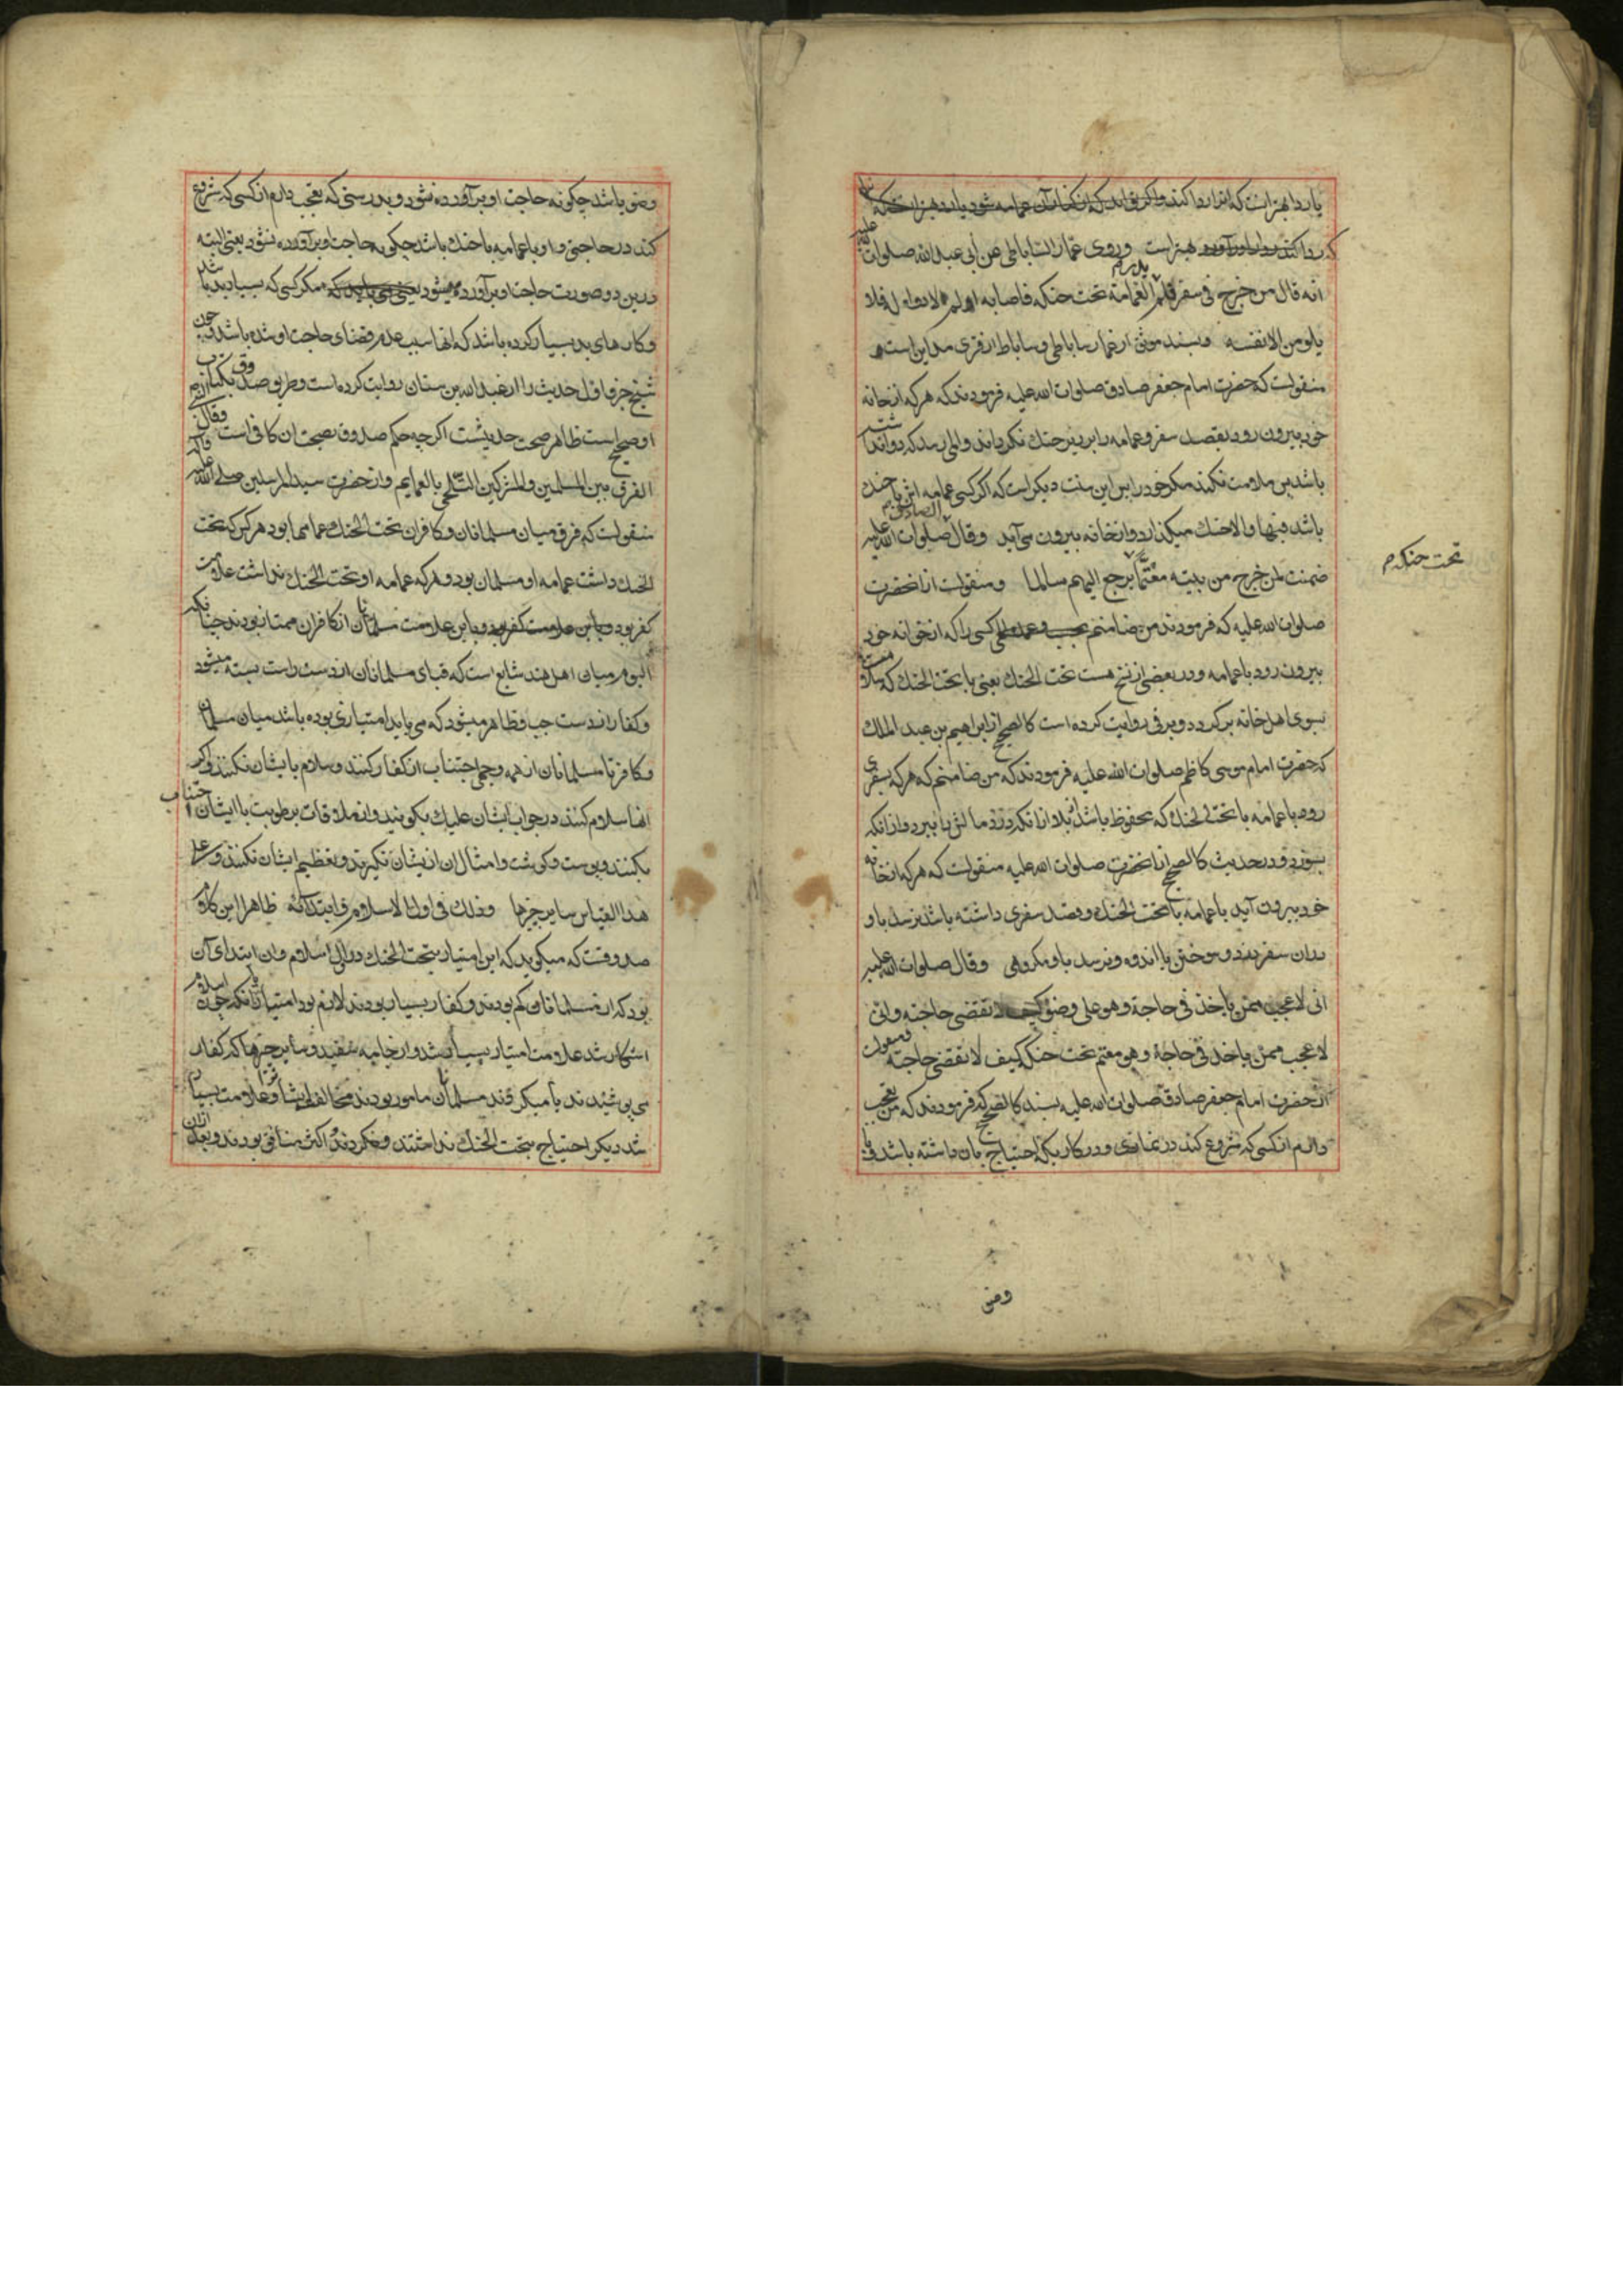 یا ردا بهتر است که ابتدا ردا کند و اگر بواند که از کنار آن عمامه شود یا رد بهتر است
که ردا کند بهتر است وروی عمار الساباطی عن أبی عبد الله صلوات الله علیه
انه قال من خرج فی سفر فلم یدر العمامة تحت حنکه فاصابه الم لا دواء له فلا
یلومن الا نفسه وبسند موثق از عمار ساباطی وساباط از قری مداین است
منقولست که حضرت امام جعفر صادق صلوات الله علیه فرمودند که هر که از خانه
خود بیرون رود بقصد سفر و عمامه را بر زیر حنک نکرداند والمی رسد که دوا نداشته
باشد پس ملامت نکند مکر خود را پس این سنت دیکر است که اکر کسی عمامه اش با حنک
باشد فبها والا حنک میکذارد و از خانه بیرون می آید وقال الصادق صلوات الله علیه
ضمنت لمن خرج من بیته معتما یرجع الیهم سالما ومنقولست از انحضرت
تحت حنکه م
صلوات الله علیه که فرمودند من ضامنم کسی را که از خوانه خود
بیرون رود با عمامه ودر بعضی از نسخ هست تحت الحنک یعنی با تحت الحنک که سلامت
بسوی اهل خانه برکردد وبرقی روایت کرده است کالصحیح از ابراهیم بن عبد الملک
که حضرت امام موسی کاظم صلوات الله علیه فرمودند که من ضامنم که هر که بسفری
رود با عمامه با تحت الحنک که محفوظ باشد از بلا از انکه دزد مالش را ببرد و از انکه
بسوزد ودر حدیث کالصحیح از انحضرت صلوات الله علیه منقولست که هر که از خانه
خود بیرون آید با عمامه با تحت الحنک وقصد سفری داشته باشد نرسد باو
در ان سفر دزد وسوختن یا اندوه ونرسد باو مکروهی وقال صلوات الله علیه
انی لاعجب ممن یاخذ فی حاجة وهو علی وضوء کیف لا تقضی حاجته وانی
لاعجب ممن یاخذ فی حاجة وهو معتم تحت حنکه کیف لا تقضی حاجته ومنقولست
از حضرت امام جعفر صادق صلوات الله علیه بسند کالصحیح که فرمودند که من تعجب
دارم از کسی که شروع کند در نمازی ودر کاریکه احتیاج بان داشته باشد و با
وضو
وضو باشد چکونه حاجت او بر آورده نشود و بدرستی که تعجب دارم از کسی که شروع
کند در حاجتی و او با عمامه با حنک باشد چکونه حاجت او بر آورده نشود یعنی البته
درین دو صورت حاجت او بر آورده میشود مکر کسی که بسیار بد باشد
وکارهای بد بسیار کرده باشد که انها سبب عدم قضای حاجت او شده باشد چون
شیخ جزو اول حدیث را از عبد الله بن سنان روایت کرده است وطریق صدوق بکتاب
او صحیح است ظاهر صحت حدیثست اکر چه حکم صدوق بصحت ان کافی است وقال
الفرق بین المسلمین والمشرکین التلحی بالعمایم واز حضرت سید المرسلین صلی الله علیه واله
منقولست که فرق میان مسلمانان وکافران تحت الحنک عمامها بود هر کس که تحت
الحنک داشت عمامه او مسلمان بود وهر که عمامه او تحت الحنک نداشت علامت
کفر بود وباین علامت مسلمانان از کافران ممتاز بودند چنانکه
الیوم میان اهل هند شایع است که قبای مسلمانان از دست راست بسته میشود
وکفار از دست چپ وظاهر میشود که می باید امتیازی بوده باشد میان مسلمان
وکافر تا مسلمانان از همه وجهی اجتناب از کفار کنند وسلام بایشان نکنند واکر
انها سلام کنند در جواب ایشان علیک بکویند واز ملاقات برطوبت با ایشان اجتناب
بکنند وپوست وکوشت وامثال ان از یشان نکیرند وتعظیم ایشان نکنند وعلی
هذا القیاس سایر چیزها وذلک فی اول الاسلام وابتدائه ظاهرا این کلام
صدوقست که میکوید که این امتیاز بتحت الحنک در اول اسلام ودر ابتدای آن
بود که از مسلمانان کم بودند وکفار بسیار بودند لازم بود امتیاز تا انکه چون اسلام
اشکار شد علامت امتیاز بسیار شد واز جامه سفید وسایر چیزها که کفار
می پوشیدند یا میکردند مسلمانان مامور بودند بمخالفت ایشان وعلامت بسیار
شد دیکر احتیاج بتحت الحنک نداشتند وفکر دند اکثر منافق بودند وبعد از ان